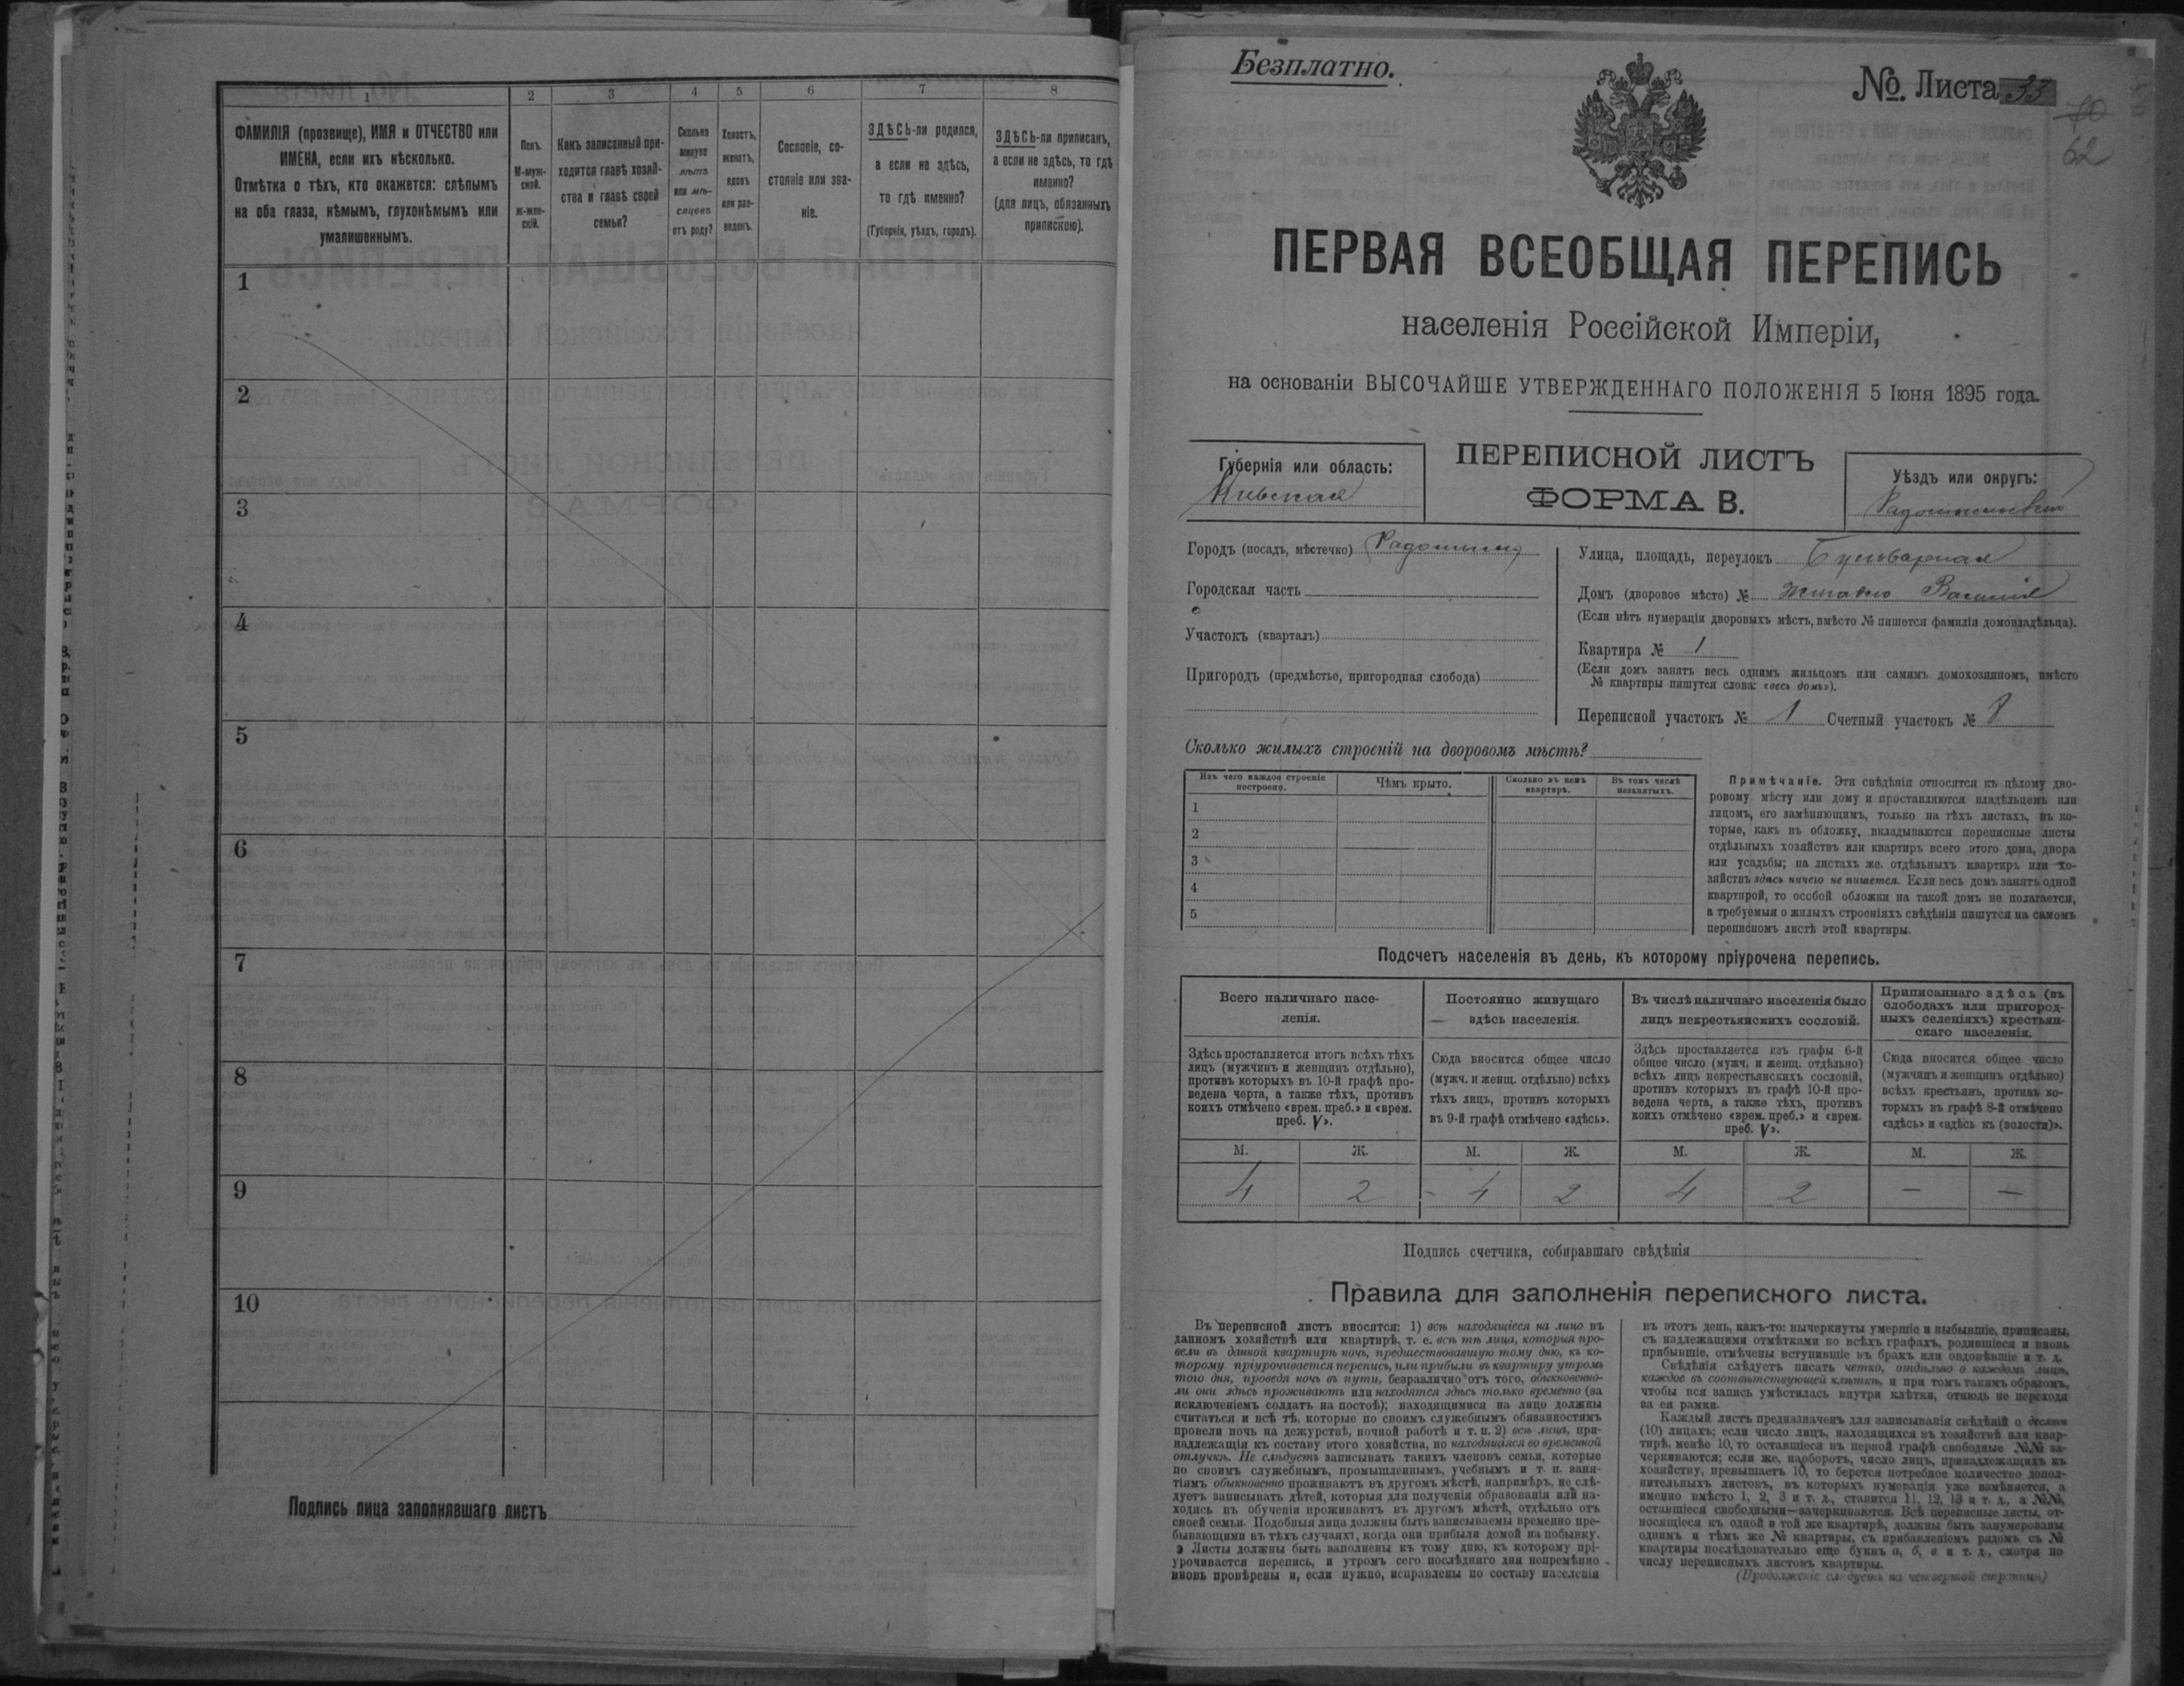 1
2
3
4
5
6
7
8
ФАМИЛІЯ (прозвище), ИМЯ и ОТЧЕСТВО или
ИМЕНА, если ихъ нѣсколько.
Отмѣтка о тѣхъ, кто окажется: слѣпымъ
на оба глаза, нѣмымъ, глухонѣмымъ или
умалишеннымъ.
Полъ.
М-муж-
ской.
Ж-жен-
скій.
Какъ записанный при-
ходится главѣ хозяй-
ства и главѣ своей
семьи?
Сколько
минуло
лѣтъ
или мѣ-
сяцевъ
отъ роду?
Холостъ,
женатъ,
вдовъ
или раз-
веденъ.
Сословіе, со-
стояніе или зва-
ніе.
ЗДѢСЬ-ли родился,
а если не здѣсь,
то гдѣ именно?
(Губернія, уѣздъ, городъ).
ЗДѢСЬ-ли приписанъ,
а если не здѣсь, то гдѣ
именно?
(для лицъ, обязанныхъ
припискою).
1
2
3
4
5
6
7
8
9
10
Подпись лица заполнявшаго листъ
Безплатно.
№. Листа 33
62
ПЕРВАЯ ВСЕОБЩАЯ ПЕРЕПИСЬ
населенія Россійской Имперіи,
на основаніи ВЫСОЧАЙШЕ УТВЕРЖДЕННАГО ПОЛОЖЕНІЯ 5 Іюня 1895 года.
Губернія или область:
Кіевская
ПЕРЕПИСНОЙ ЛИСТЪ
ФОРМА В.
Уѣздъ или округъ:
Радомысльскій
Городъ (посадъ, мѣстечко) Радомысль
Городская часть
Участокъ (кварталъ)
Пригородъ (предмѣстье, пригородная слобода)
Улица, площадь, переулокъ Бульварная
Домъ (дворовое мѣсто) №
(Если нѣтъ нумераціи дворовыхъ мѣстъ, вмѣсто № пишется фамилія домовладѣльца).
Квартира № 1
(Если домъ занятъ весь однимъ жильцомъ или самимъ домохозяиномъ, вмѣсто
№ квартиры пишутся слова: «весь домъ»).
Переписной участокъ № 1 Счетный участокъ № 8
Сколько жилыхъ строеній на дворовомъ мѣстѣ?
Изъ чего каждое строеніе
построено.
Чѣмъ крыто.
Сколько въ немъ
квартиръ.
Въ томъ числѣ
незанятыхъ.
1
2
3
4
5
Примѣчаніе. Эти свѣдѣнія относятся къ цѣлому дво-
ровому мѣсту или дому и проставляются владѣльцемъ или
лицомъ, его замѣняющимъ, только на тѣхъ листахъ, въ ко-
торые, какъ въ обложку, вкладываются переписные листы
отдѣльныхъ хозяйствъ или квартиръ всего этого дома, двора
или усадьбы; на листахъ же отдѣльныхъ квартиръ или хо-
зяйствъ здѣсь ничего не пишется. Если весь домъ занятъ одной
квартирой, то особой обложки на такой домъ не полагается,
а требуемыя о жилыхъ строеніяхъ свѣдѣнія пишутся на самомъ
переписномъ листѣ этой квартиры.
Подсчетъ населенія въ день, къ которому пріурочена перепись.
Всего наличнаго насе-
ленія.
Постоянно живущаго
здѣсь населенія.
Въ числѣ наличнаго населенія было
лицъ некрестьянскихъ сословій.
Приписаннаго здѣсь (въ
слободахъ или пригород-
ныхъ селеніяхъ) крестьян-
скаго населенія.
Здѣсь проставляется итогъ всѣхъ тѣхъ
лицъ (мужчинъ и женщинъ отдѣльно),
противъ которыхъ въ 10-й графѣ про-
ведена черта, а также тѣхъ, противъ
коихъ отмѣчено «врем. преб.» и «врем.
преб. V».
Сюда вносится общее число
(мужч. и женщ. отдѣльно) всѣхъ
тѣхъ лицъ, противъ которыхъ
въ 9-й графѣ отмѣчено «здѣсь».
Здѣсь проставляется изъ графы 6-й
общее число (мужч. и женщ. отдѣльно)
всѣхъ лицъ некрестьянскихъ сословій,
противъ которыхъ въ графѣ 10-й про-
ведена черта, а также тѣхъ, противъ
коихъ отмѣчено «врем. преб.» и «врем.
преб. V».
Сюда вносится общее число
(мужчинъ и женщинъ отдѣльно)
всѣхъ крестьянъ, противъ ко-
торыхъ въ графѣ 8-й отмѣчено
«здѣсь» и «здѣсь къ (волости)».
М. Ж. М. Ж. М. Ж. М. Ж.
4 2 4 2 4 2 — —
Подпись счетчика, собиравшаго свѣдѣнія
Правила для заполненія переписного листа.
Въ переписной листъ вносятся: 1) всѣ находящіеся на лицо въ
данномъ хозяйствѣ или квартирѣ, т. е. всѣ тѣ лица, которыя про-
вели въ данной квартирѣ ночь, предшествовавшую тому дню, къ ко-
торому пріурочивается перепись, или прибыли въ квартиру утромъ
того дня, проведя ночь въ пути, безразлично отъ того, обыкновенно-
ли они здѣсь проживаютъ или находятся здѣсь только временно (за
исключеніемъ солдатъ на постоѣ); находящимися на лицо должны
считаться и всѣ тѣ, которые по своимъ служебнымъ обязанностямъ
провели ночь на дежурствѣ, ночной работѣ и т. п. 2) всѣ лица, при-
надлежащія къ составу этого хозяйства, но находящіяся во временной
отлучкѣ. Не слѣдуетъ записывать такихъ членовъ семьи, которые
по своимъ служебнымъ, промышленнымъ, учебнымъ и т. п. заня-
тіямъ обыкновенно проживаютъ въ другомъ мѣстѣ, напримѣръ, не слѣ-
дуетъ записывать дѣтей, которыя для полученія образованія или на-
ходясь въ обученіи проживаютъ въ другомъ мѣстѣ, отдѣльно отъ
своей семьи. Подобныя лица должны быть записываемы временно пре-
бывающими въ тѣхъ случаяхъ, когда они прибыли домой на побывку.
Листы должны быть заполнены къ тому дню, къ которому прі-
урочивается перепись, и утромъ сего послѣдняго дня непремѣнно
вновь провѣрены и, если нужно, исправлены по составу населенія
въ этотъ день, какъ-то: вычеркнуты умершіе и выбывшіе, приписаны,
съ надлежащими отмѣтками во всѣхъ графахъ, родившіеся и вновь
прибывшіе, отмѣчены вступившіе въ бракъ или овдовѣвшіе и т. д.
Свѣдѣнія слѣдуетъ писать четко, отдѣльно о каждомъ лицѣ,
каждое въ соотвѣтствующей клѣткѣ, и при томъ такимъ образомъ,
чтобы вся запись умѣстилась внутри клѣтки, отнюдь не переходя
за ея рамки.
Каждый листъ предназначенъ для записыванія свѣдѣній о десяти
(10) лицахъ; если число лицъ, находящихся въ хозяйствѣ или квар-
тирѣ, менѣе 10, то оставшіеся въ первой графѣ свободные №№ за-
черкиваются; если же, наоборотъ, число лицъ, принадлежащихъ къ
хозяйству, превышаетъ 10, то берется потребное количество допол-
нительныхъ листовъ, въ которыхъ нумерація уже измѣняется, а
именно вмѣсто 1, 2, 3 и т. д., ставится 11, 12, 13 и т. д., а №№,
оставшіеся свободными—зачеркиваются. Всѣ переписные листы, от-
носящіеся къ одной и той же квартирѣ, должны быть занумерованы
однимъ и тѣмъ же № квартиры, съ прибавленіемъ рядомъ съ №
квартиры послѣдовательно еще буквъ а, б, в и т. д., смотря по
числу переписныхъ листовъ квартиры.
(Продолженіе слѣдуетъ на четвертой страницѣ)